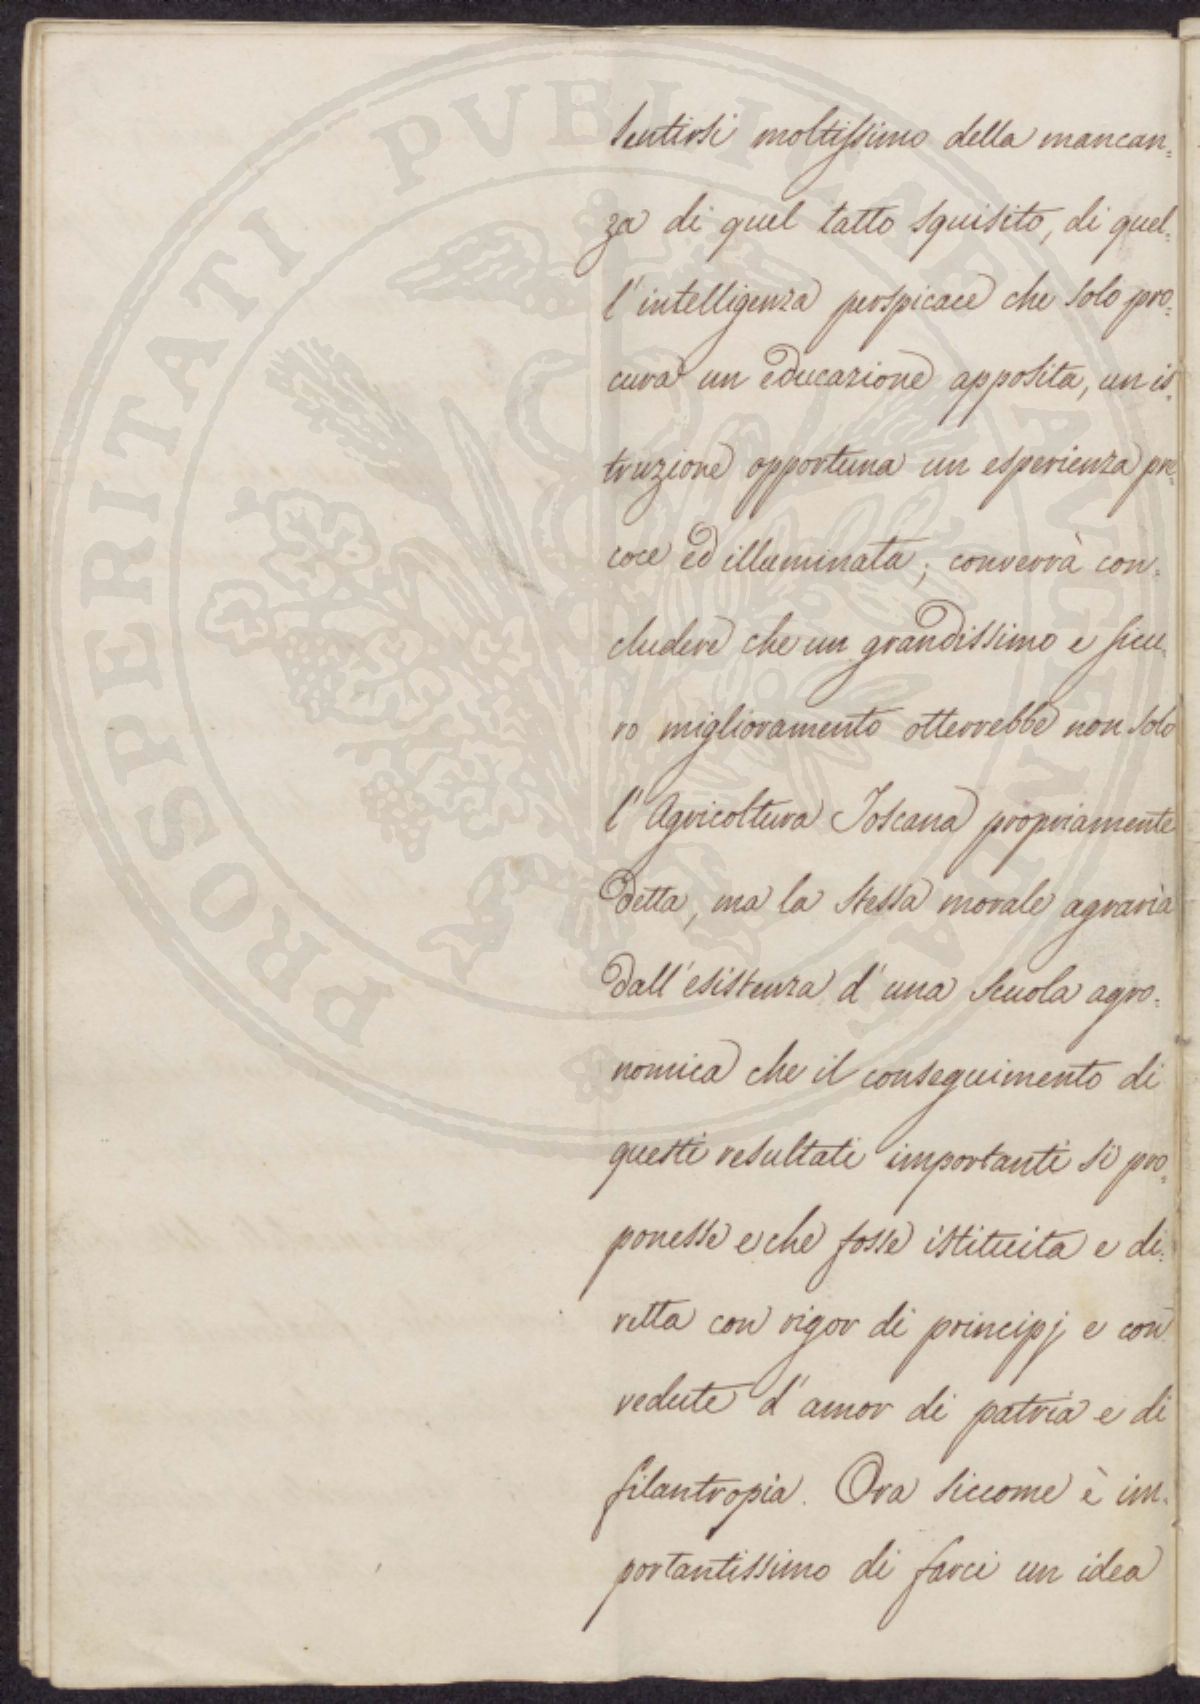 sentirsi moltissimo della mancan=
za di quel tatto squisito, di quel=
l'intelligenza perspicace che solo pro=
cura un educazione apposita, un is=
truzione opportuna un esperienza pre=
coce ed illuminata; converrà con=
cludere che un grandissimo e sicu=
ro miglioramento otterrebbe non solo
l'Agricoltura Toscana propriamente
detta, ma la stessa morale agraria
dall'esistenza d'una scuola agro=
nomica che il conseguimento di
questi resultati importanti si pro=
ponesse e che fosse istituita e di=
retta con rigor di principj e con
vedute d'amor di patria e di
filantropia. Ora siccome è im=
portantissimo di farci un idea
PROSPERITATI PVBLICAE AVGENDAE